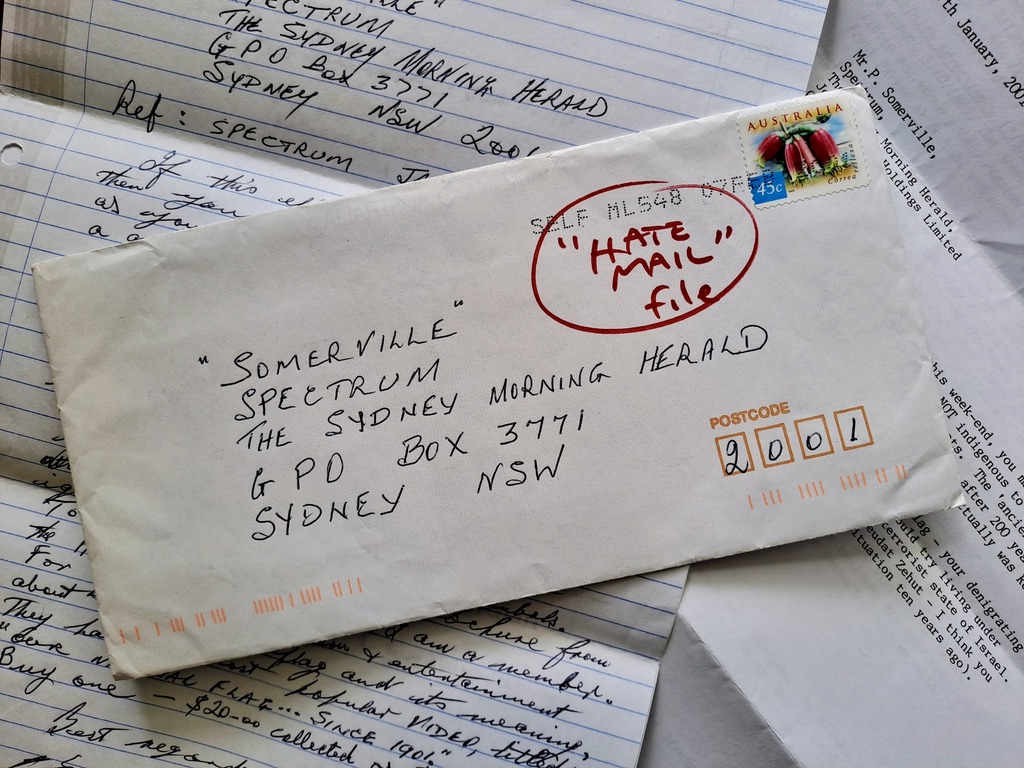 SPECTRUM
THE SYDNEY MORNING HERALD
GPO BOX 3771
SYDNEY NSW 2001
Ref: SPECTRUM
If this
then you
as you
a
AUSTRALIA
45c
SELF ML548 07FE
"HATE
MAIL"
file
"SOMERVILLE"
SPECTRUM
THE SYDNEY MORNING HERALD
GPO BOX 3771
SYDNEY NSW
POSTCODE
2001
the
For
about
They ha
Buy one - $20-00 collected
ochure from
am a member.
& entertainment
flag and its meaning,
popular VIDEO, titled
AL FLAG... SINCE 1901."
Best regard
th January, 2001
Mr P. Somerville,
Spectrum,
Morning Herald,
Holdings Limited
his week-end, you m
NOT indigenous to
ts. The 'ancie
after 200 yea
tually was R
lag, your denigrating
ould try living under
terrorist state of Israel.
eudat Zehut - I think you
ituation ten years ago).